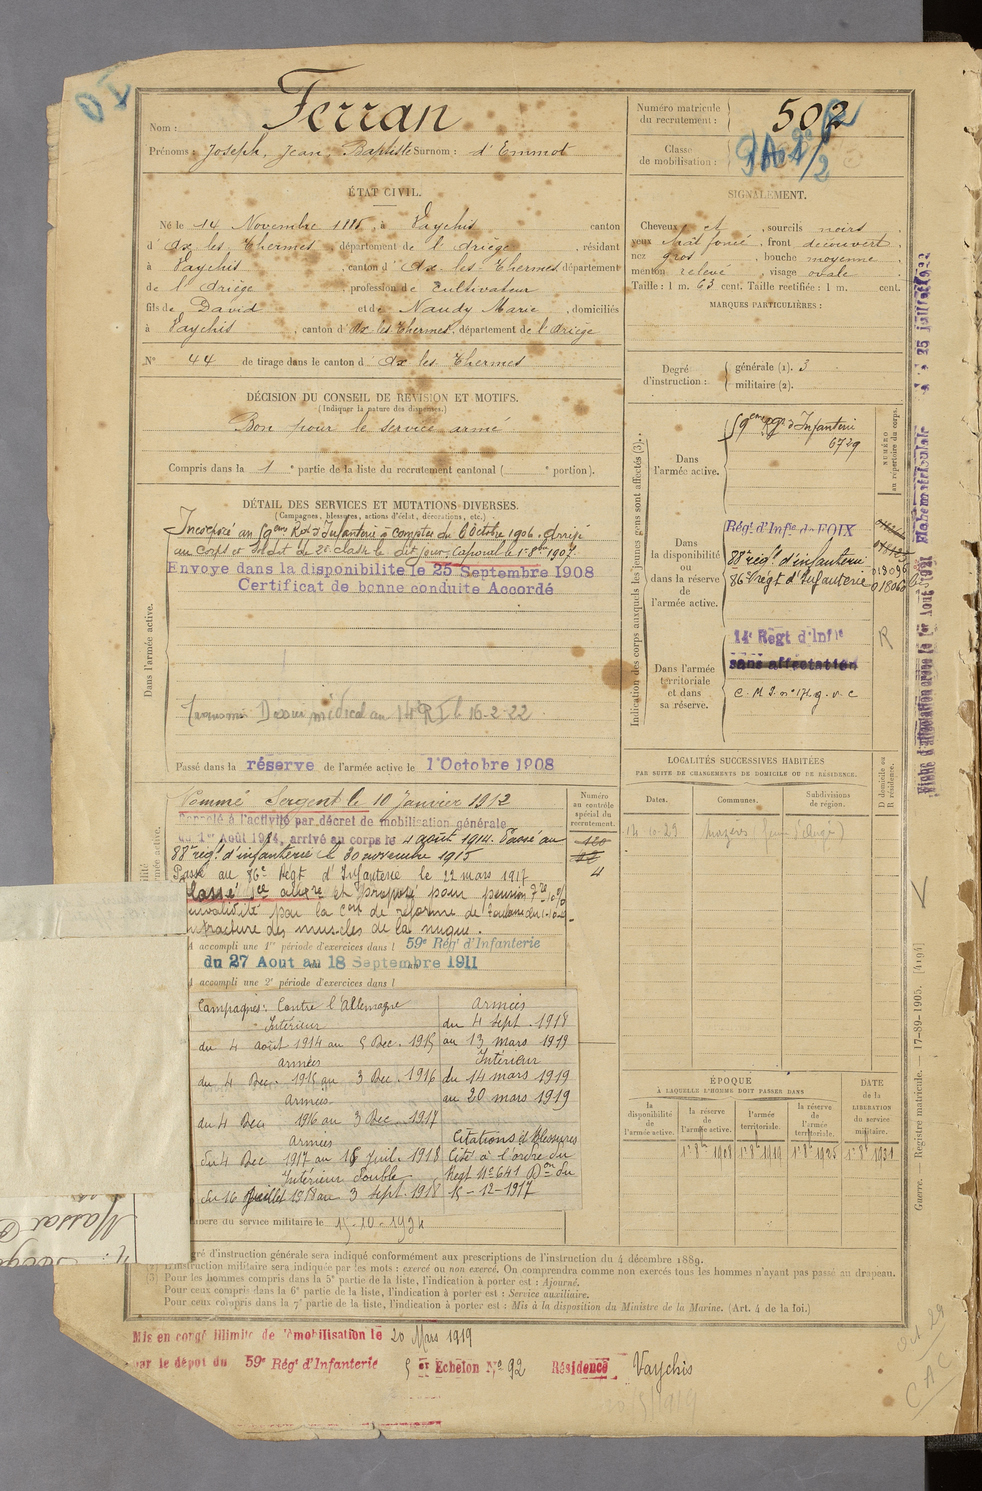 Nom : Ferran
Prénoms : Joseph, Jean, Baptiste Surnom : d'Emmot
Numéro matricule du recrutement : 502
Classe de mobilisation :
ÉTAT CIVIL.
Né le 14 Novembre 1885, à Vaychis canton
d'Ax les Thermes, département de l'Ariège, résidant
à Vaychis, canton d'Ax-les-Thermes, département
de l'Ariège, profession de Cultivateur
fils de David et de Naudy Marie, domiciliés
à Vaychis, canton d'Ax les Thermes, département de l'Ariège
N° 44 de tirage dans le canton d'Ax les Thermes
SIGNALEMENT.
Cheveux et, sourcils noirs,
yeux chat foncé, front découvert,
nez gros, bouche moyenne,
menton relevé, visage ovale.
Taille : 1 m. 63 cent. Taille rectifiée : 1 m. cent.
MARQUES PARTICULIÈRES :
Degré d'instruction : générale (1). 3
militaire (2).
DÉCISION DU CONSEIL DE RÉVISION ET MOTIFS.
(Indiquer la nature des dispenses.)
Bon pour le service armé
Compris dans la 1e partie de la liste du recrutement cantonal ( e portion).
DÉTAIL DES SERVICES ET MUTATIONS DIVERSES.
(Campagnes, blessures, actions d'éclat, décorations, etc.)
Dans l'armée active.
Incorporé au 59eme Régt d'Infanterie à compter du 6 Octobre 1906. Arrivé
au Corps et Soldat de 2e classe le dit jour. Caporal le 1er 8bre 1907.
Envoyé dans la disponibilité le 25 Septembre 1908
Certificat de bonne conduite Accordé
Transmis Dossier médical au 14e RI le 16-2-22
Passé dans la réserve de l'armée active le 1 Octobre 1908
Nommé Sergent le 10 Janvier 1912
Rappelé à l'activité par décret de mobilisation générale
du 1er Août 1914, arrivé au corps le 4 août 1914. Passé au
88e régt d'infanterie le 30 novembre 1915
Passé au 86e Régt d'Infanterie le 22 mars 1917
Classé et proposé pour pension
invalidité par la Con de réforme de
des muscles de la nuque.
accompli une 1re période d'exercices dans l 59e Régt d'Infanterie
du 27 Aout au 18 Septembre 1911
accompli une 2e période d'exercices dans l
Numéro au contrôle spécial du recrutement.
4
Indication des corps auxquels les jeunes gens sont affectés (3).
NUMÉRO au répertoire du corps.
Dans l'armée active.
59eme Régt d'Infanterie
6729
Dans la disponibilité ou dans la réserve de l'armée active.
Régt d'Infie de FOIX
88e régt d'infanterie
86e régt d'Infanterie
Dans l'armée territoriale et dans sa réserve.
14e Régt d'Infie
sans affectation
C. M. I. n° 171 g. v. c
R
LOCALITÉS SUCCESSIVES HABITÉES
PAR SUITE DE CHANGEMENTS DE DOMICILE OU DE RÉSIDENCE.
Dates.
Communes.
Subdivisions de région.
D domicile ou R résidence.
Campagnes : Contre l'Allemagne
Intérieur
du 4 août 1914 au 3 Dec. 1915
armées
du 4 Dec. 1915 au 3 Dec. 1916
Armées
du 4 Dec 1916 au 3 Dec 1917
Armées
du 4 Dec 1917 au 15 Juil. 1918
Intérieur double
du 16 Juillet 1918 au 3 Sept. 1918
armées
du 4 Sept. 1918
au 13 mars 1919
Intérieur
du 14 mars 1919
au 20 mars 1919
Citations et Blessures
Cité à l'ordre du
Régt N° 641 Don du
5-12-1917
ÉPOQUE
À LAQUELLE L'HOMME DOIT PASSER DANS
la disponibilité de l'armée active.
la réserve de l'armée active.
l'armée territoriale.
la réserve de l'armée territoriale.
DATE de la LIBÉRATION du service militaire.
1er 8bre 1908
1er 8bre 1919
1er 8bre 1925
1er 8bre 1931
du service militaire le 15-10-1934
gré d'instruction générale sera indiqué conformément aux prescriptions de l'instruction du 4 décembre 1889.
instruction militaire sera indiquée par les mots : exercé ou non exercé. On comprendra comme non exercés tous les hommes n'ayant pas passé au drapeau.
(3) Pour les hommes compris dans la 5e partie de la liste, l'indication à porter est : Ajourné.
Pour ceux compris dans la 6e partie de la liste, l'indication à porter est : Service auxiliaire.
Pour ceux compris dans la 7e partie de la liste, l'indication à porter est : Mis à la disposition du Ministre de la Marine. (Art. 4 de la loi.)
Mis en congé illimité de démobilisation le 20 Mars 1919
par le dépôt du 59e Régt d'Infanterie 5 er Echelon N° 92 Résidence Vaychis
Guerre. — Registre matricule. 17-89-1905. [4194]
CAC